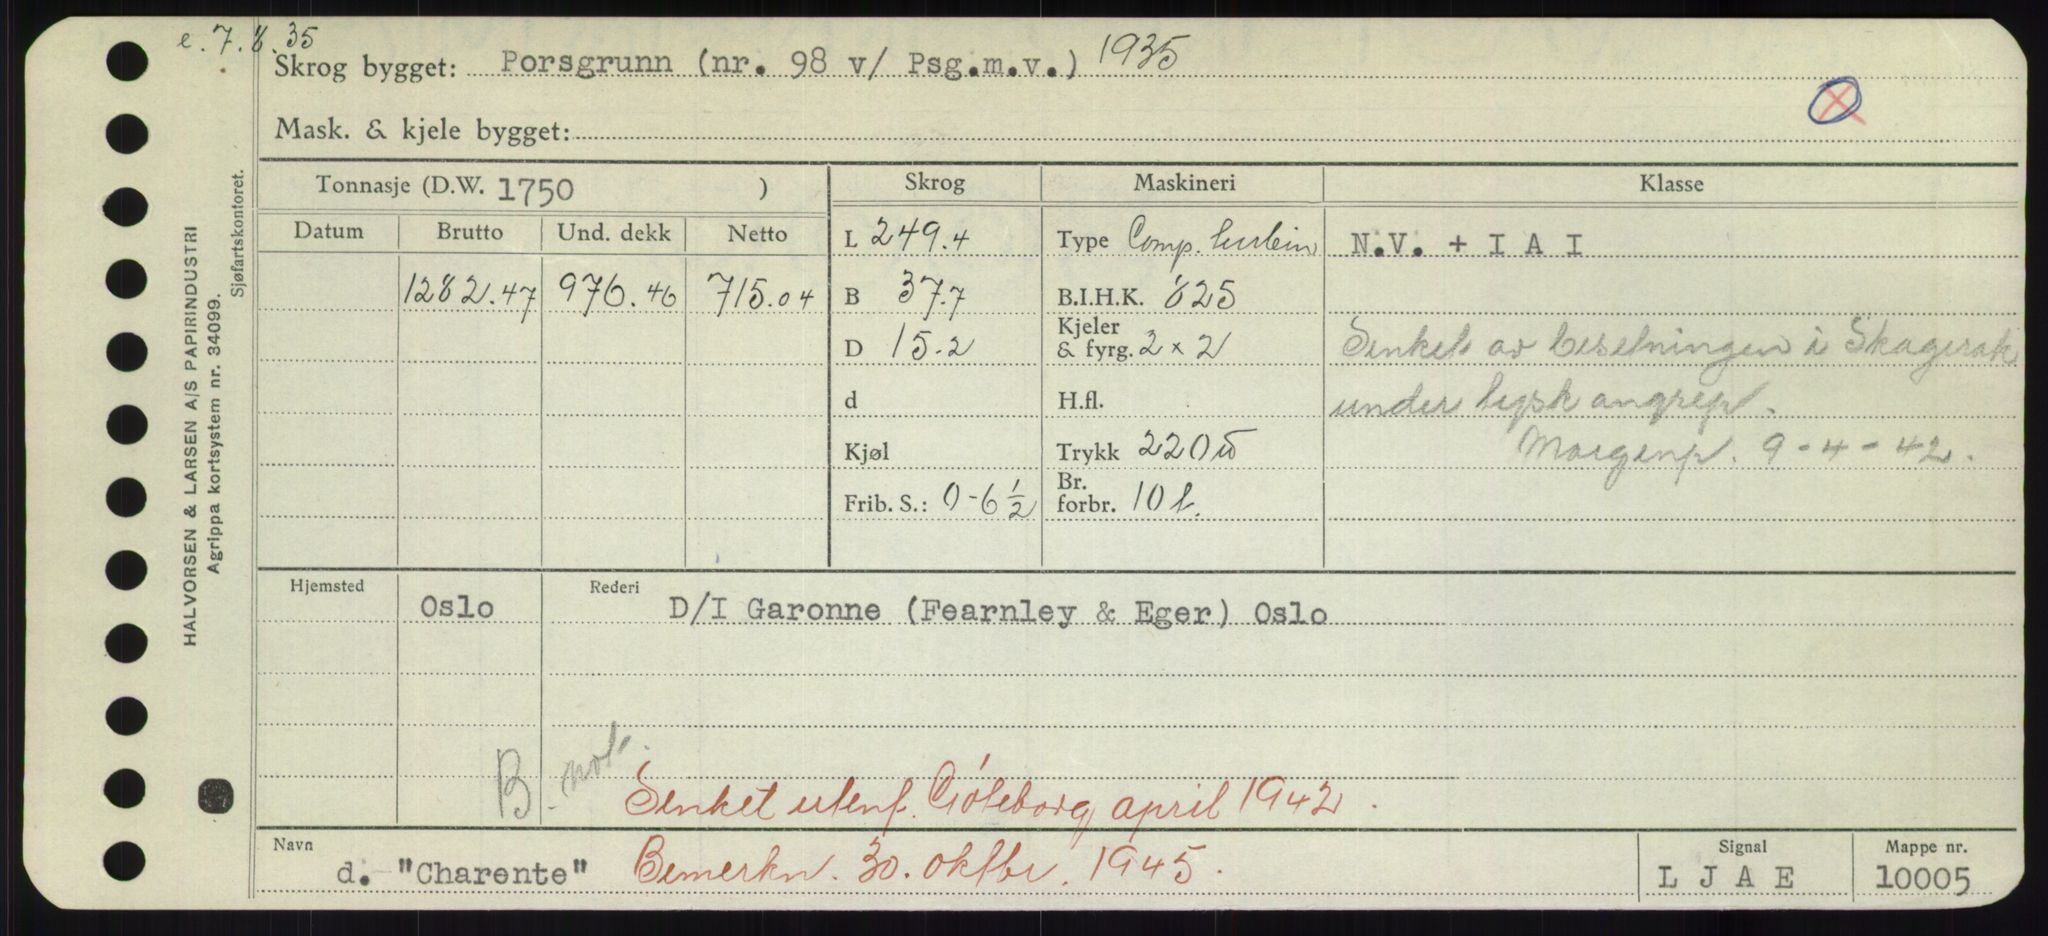 e. 7. 8. 35
Skrog bygget: Porsgrunn (nr. 98 v/ Psg.m.v.) 1935
Mask. & kjele bygget:
HALVORSEN & LARSEN A/S PAPIRINDUSTRI
Agrippa kortsystem nr. 34099.
Sjøfartskontoret.
Tonnasje (D.W. 1750 )
Skrog
Maskineri
Klasse
Datum Brutto Und. dekk Netto
1282.47 976.46 715.04
L 249.4
B 37.7
D 15.2
d
Kjøl
Frib. S.: 0-6 1/2
Type Comp. turbin
B.I.H.K. 825
Kjeler
& fyrg. 2 x 2
H.fl.
Trykk 220
Br.
forbr. 10 t.
N.V. + I A I
Senket av besetningen i Skagerak
under tysk angrep.
Morgenp. 9-4-42.
Hjemsted
Oslo
Rederi
D/I Garonne (Fearnley & Eger) Oslo
B. not.
Senket utenf. Göteborg april 1942.
Navn
d. "Charente" Bemerkn. 30. oktbr. 1945.
Signal
L J A E
Mappe nr.
10005